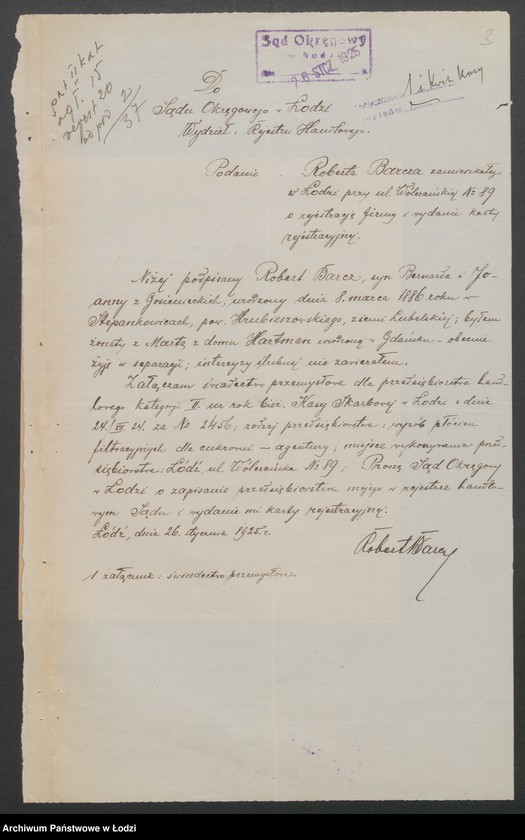 3
Sąd Okręgowy
w Łodzi
26 STCZ. 1925
Do
Sądu Okręgowego w Łodzi
Wydział Rejestru Handlowego.
Podanie Roberta Barcza zamieszkałego
w Łodzi przy ul. Wólczańskiej № 89
o rejestrację firmy i wydanie karty
rejestracyjnej.
Niżej podpisany Robert Barcz, syn Bernarda i Jo-
anny z Gosienieckich, urodzony dnia 8. marca 1886 roku w
Stepankowicach, pow. Hrubieszowskiego, ziemi Lubelskiej; byłem
żonaty z Martą z domu Hartman urodzoną w Gdańsku – obecnie
żyję w separacji; intercyzy ślubnej nie zawierałem.
Załączam świadectwo przemysłowe dla przedsiębiorstwa hand-
lowego kategorji II. na rok bież. Kasy Skarbowej w Łodzi z dnia
24/XII 24. za № 2456; rodzaj przedsiębiorstwa: wyrób płócien
filtracyjnych dla cukrowni – agentury; miejsce wykonywania przed-
siębiorstwa: Łódź, ul. Wólczańska № 89; Proszę Sąd Okręgowy
w Łodzi o zapisanie przedsiębiorstwa mojego w rejestrze handlo-
wym Sądu i wydanie mi karty rejestracyjnej.
Łódź, dnia 26. stycznia 1925 r.
Robert Barcz
1 załącznik: świadectwo przemysłowe.
Archiwum Państwowe w Łodzi